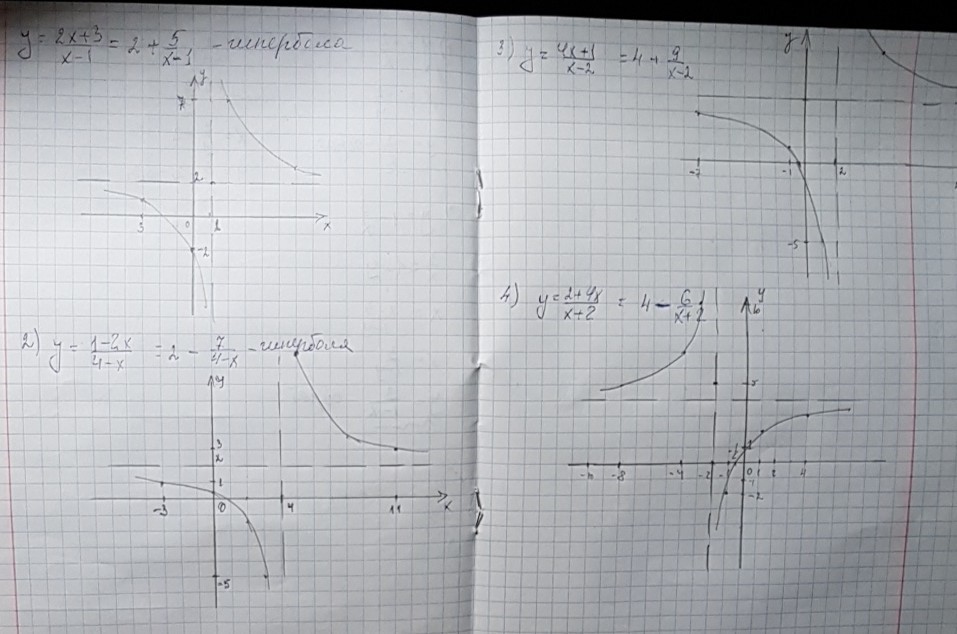 y = 2x+3/x-1 = 2 + 5/x-1 - гипербола
y
7
2
0 1
x
3
-2
2) y = 1-2x/4-x = 2 - 7/4-x - гипербола
y
3
2
1
-3
0
4
11
x
-5
3) y = 4x+1/x-2 = 4 + 9/x-2
y
-7
-1
2
-5
4) y = 2+4x/x+2 = 4 - 6/x+2
y
6
-8
-4
-2
-1
0 1 2 4
1
-2